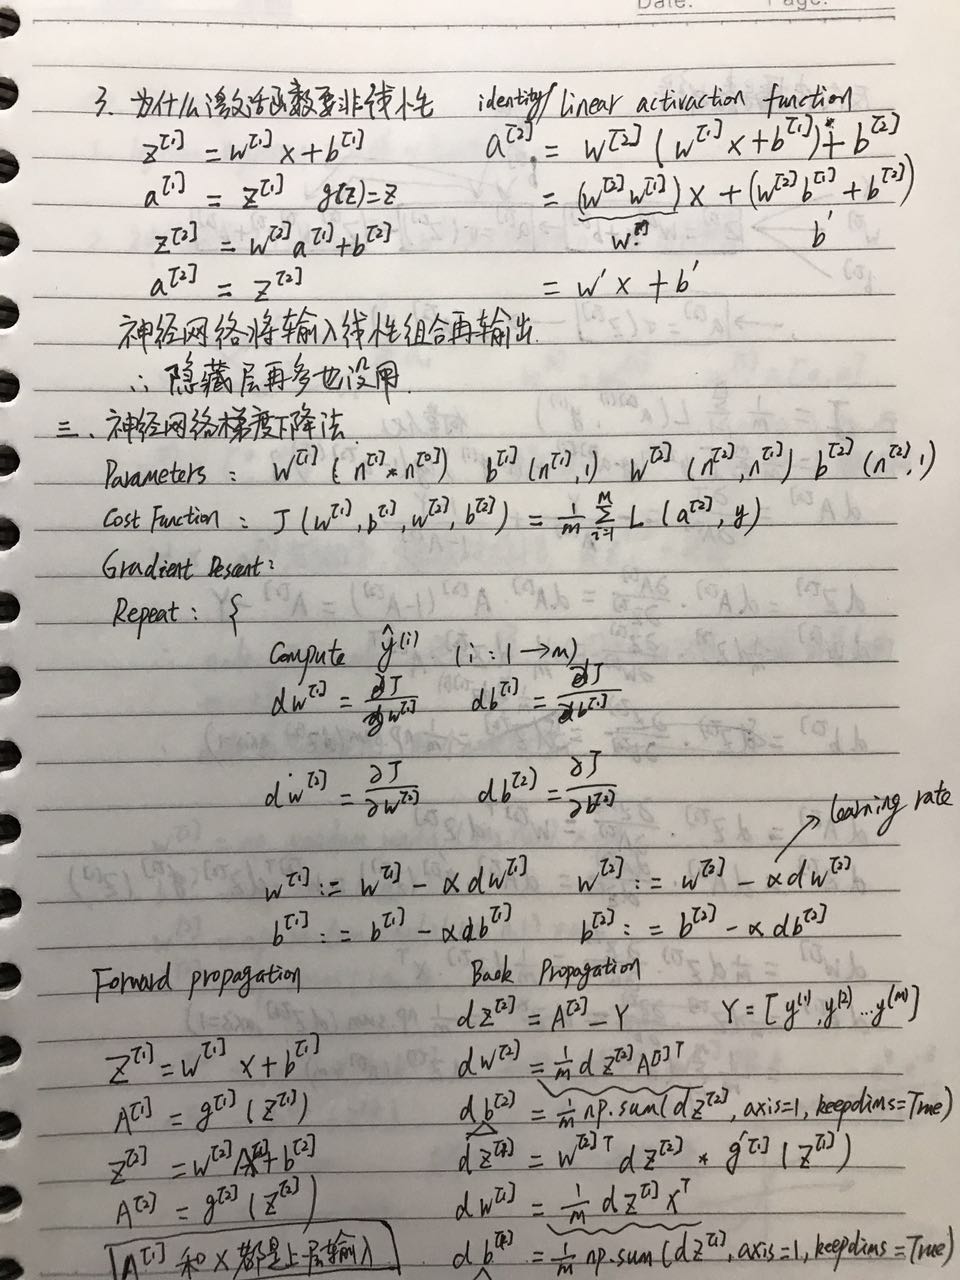 Date. Page.
3. 为什么激活函数要非线性 identity/linear activaction function
z^[1] = w^[1] x + b^[1] a^[2] = w^[2] (w^[1] x + b^[1]) + b^[2]
a^[1] = z^[1] g(z) = z = (w^[2] w^[1]) x + (w^[2] b^[1] + b^[2])
z^[2] = w^[2] a^[1] + b^[2] w' b'
a^[2] = z^[2] = w' x + b'
神经网络将输入线性组合再输出.
∴ 隐藏层再多也没用.
三、神经网络梯度下降法.
Parameters : W^[1] (n^[1] * n^[0]) b^[1] (n^[1], 1) W^[2] (n^[2], n^[1]) b^[2] (n^[2], 1)
Cost Function : J (w^[1], b^[1], w^[2], b^[2]) = 1/m Σ_{i=1}^{m} L (a^[2], y)
Gradient Descent :
Repeat : {
Compute ŷ^(i) (i : 1 → m)
dw^[1] = ∂J/∂w^[1] db^[1] = ∂J/∂b^[1]
dw^[2] = ∂J/∂w^[2] db^[2] = ∂J/∂b^[2]
learning rate
w^[1] := w^[1] - α dw^[1] w^[2] := w^[2] - α dw^[2]
b^[1] := b^[1] - α db^[1] b^[2] := b^[2] - α db^[2]
Forward propagation Back Propagation
dz^[2] = A^[2] - Y Y = [y^(1), y^(2) ... y^(m)]
Z^[1] = w^[1] x + b^[1] dw^[2] = 1/m dz^[2] A^[1]T
A^[1] = g^[1] (Z^[1]) db^[2] = 1/m np.sum(dz^[2], axis=1, keepdims=True)
Z^[2] = w^[2] A^[1] + b^[2] dz^[1] = w^[2]T dz^[2] * g'^[1] (Z^[1])
A^[2] = g^[2] (Z^[2]) dw^[1] = 1/m dz^[1] x^T
A^[1] 和 X 都是上层输入 db^[1] = 1/m np.sum(dz^[1], axis=1, keepdims=True)